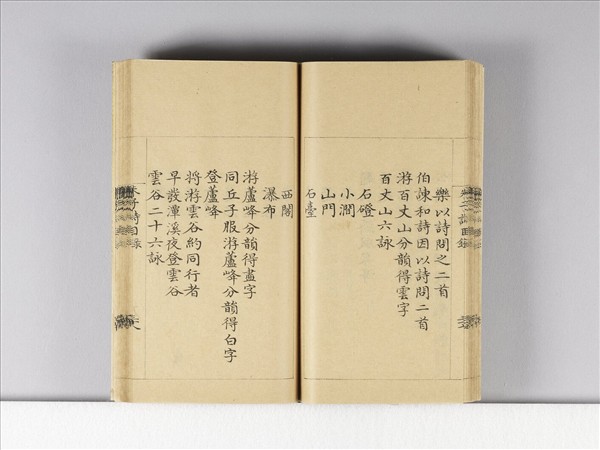 樂以詩問之二首
伯諫和詩因以詩問二首
游百丈山分韻得雲字
百丈山六詠
石磴
小澗
山門
石臺
西閣
瀑布
游蘆峰分韻得盡字
同丘子服游蘆峰分韻得白字
登蘆峰
將游雲谷約同行者
早發潭溪夜登雲谷
雲谷二十六詠